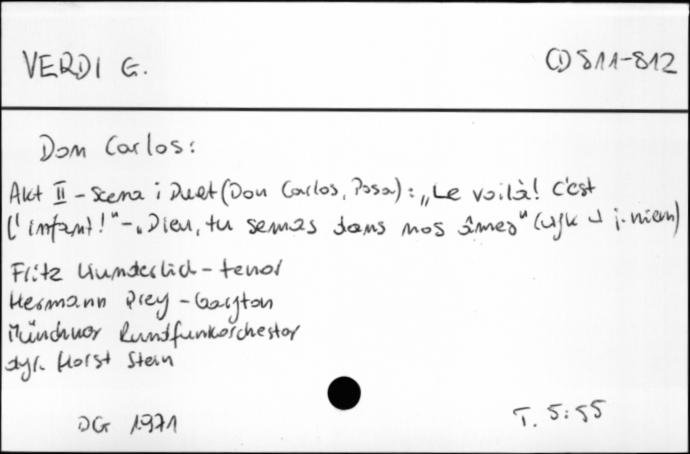 VERDI G.
CD 811-812
Don Carlos:
Akt II - Scena i Duet (Don Carlos, Posa): „Le voilà! C'est
l'infant!" - „Dieu, tu semas dans nos âmes" (wyk. w j. niem)
Fritz Wunderlich - tenor
Hermann Prey - baryton
Münchner Rundfunkorchester
dyr. Horst Stein
DG 1971
T. 5:55